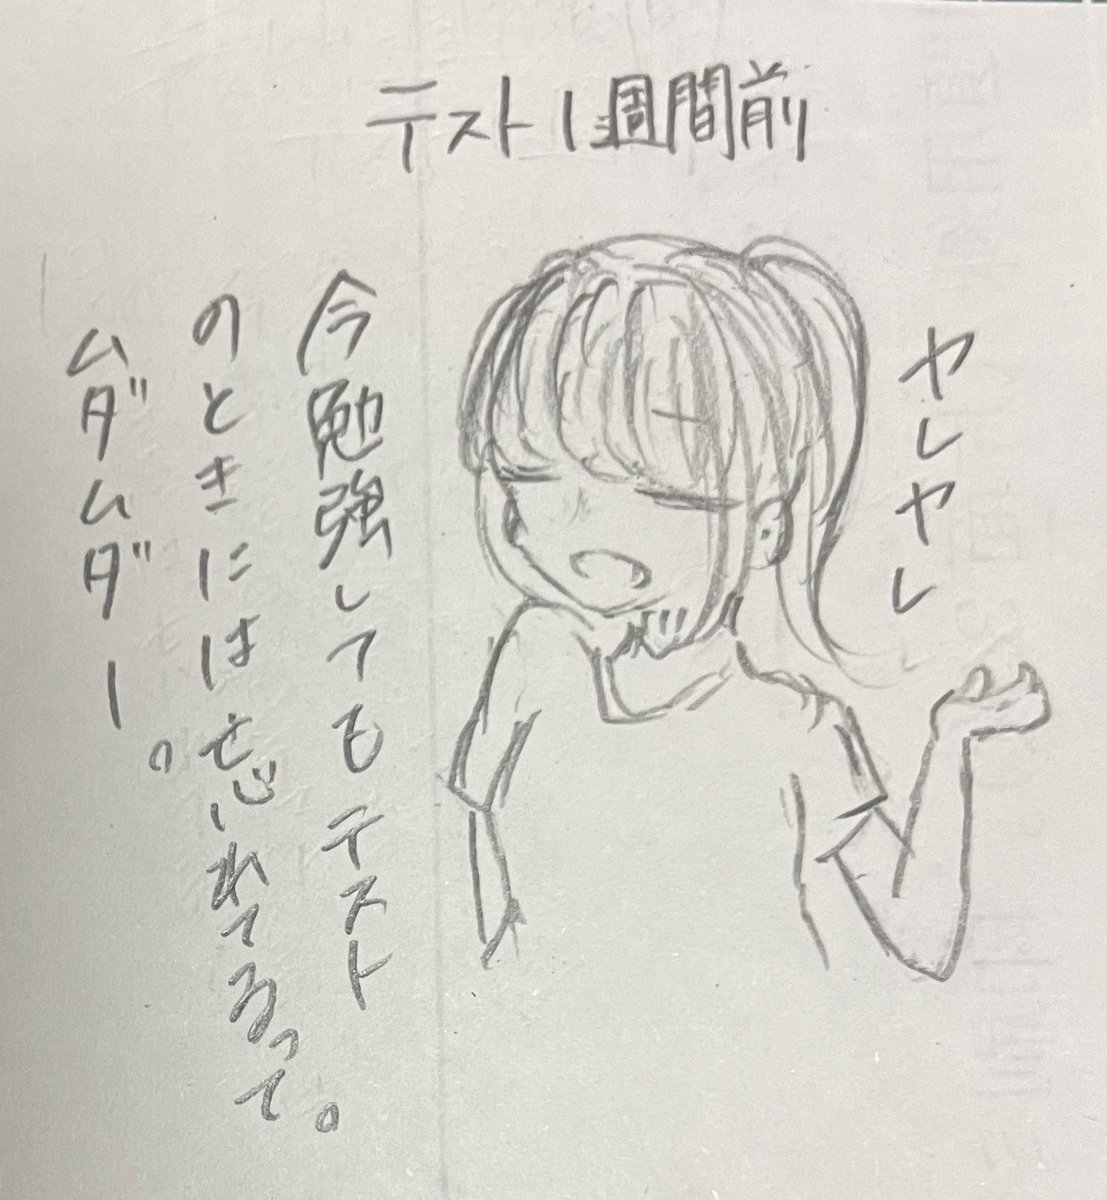 テスト1週間前
ヤレヤレ
今勉強してもテスト
のときには忘れてるって。
ムダムダー。